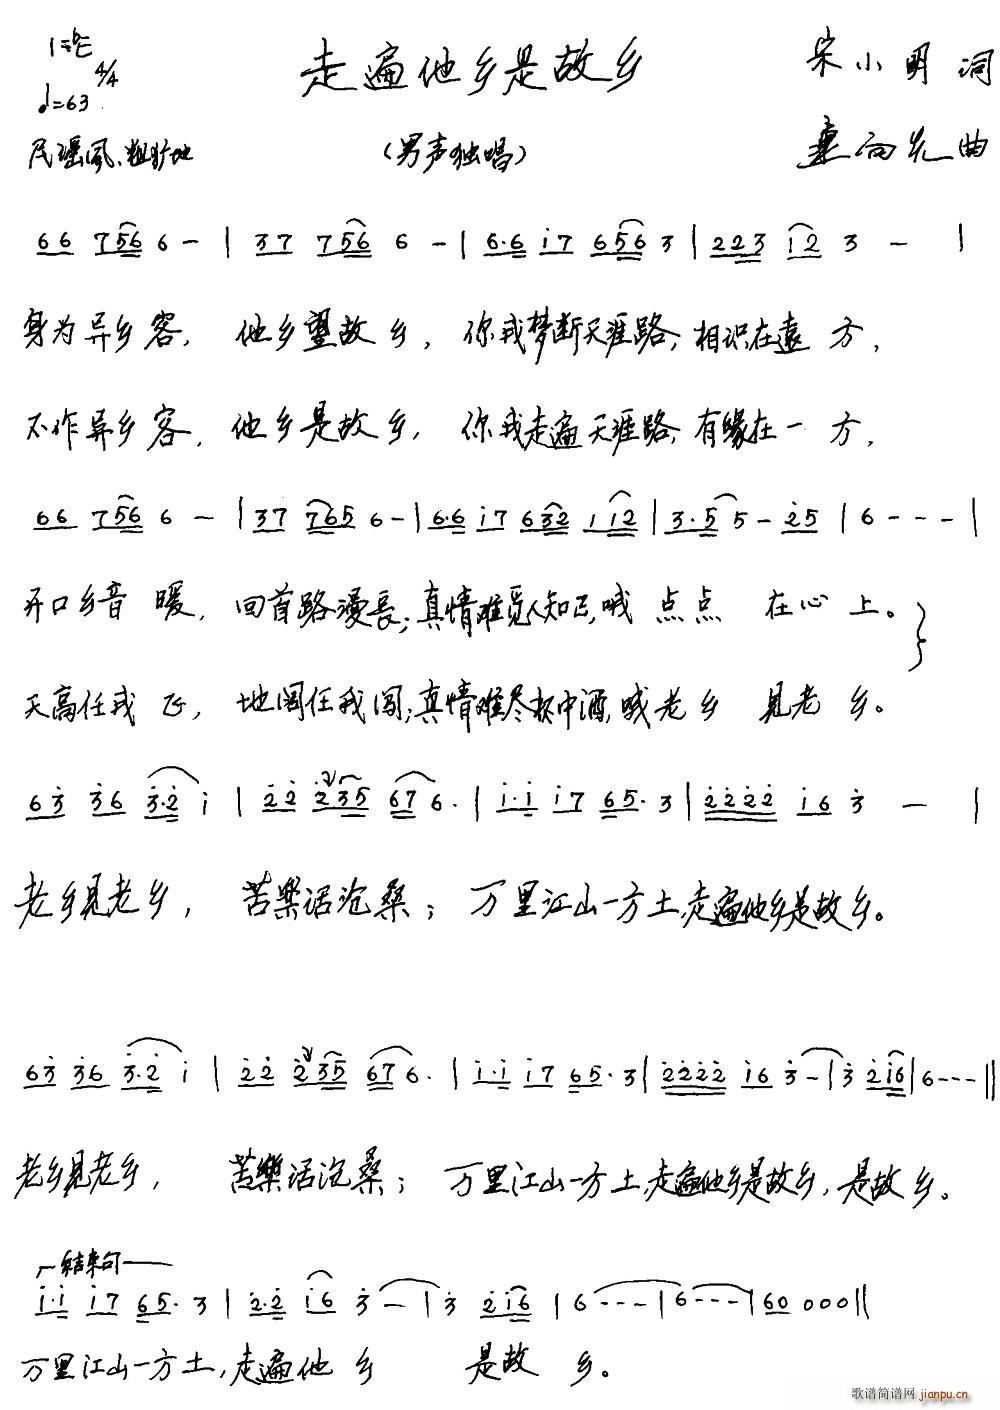 1=♭E 4/4
走遍他乡是故乡
宋小明 词
♩=63
民谣风、粗犷地
(男声独唱)
曲
66 756 6 - | 37 756 6 - | 6·6 i7 656 3 | 223 i2 3 - |
身为异乡客, 他乡望故乡, 你我梦断天涯路, 相识在遠方,
不作异乡客, 他乡是故乡, 你我走遍天涯路, 有缘在一方,
66 756 6 - | 37 765 6 - | 6·6 i7 632 1i2 | 3·5 5 - 25 | 6 - - - |
开口乡音暖, 回首路漫長; 真情难觅人知己, 哦 点点 在心上。
天高任我飞, 地阔任我闯; 真情难尽杯中酒, 哦老乡 见老乡。
63 36 3·2 i | 22 235 67 6· | i·i i7 65· 3 | 2222 i6 3 - |
老乡見老乡, 苦樂话沧桑; 万里江山一方土,走遍他乡是故乡。
63 36 3·2 i | 22 235 67 6· | i·i i7 65· 3 | 2222 i6 3 - | 3 2i6 | 6 - - - ||
老乡見老乡, 苦樂话沧桑; 万里江山一方土,走遍他乡是故乡, 是故乡。
结束句
i·i i7 65· 3 | 2·2 i6 3 - | 3 2i6 | 6 - - - | 6 - - - | 60 000 ||
万里江山一方土,走遍他乡 是故乡。
歌谱简谱网 jianpu.cn